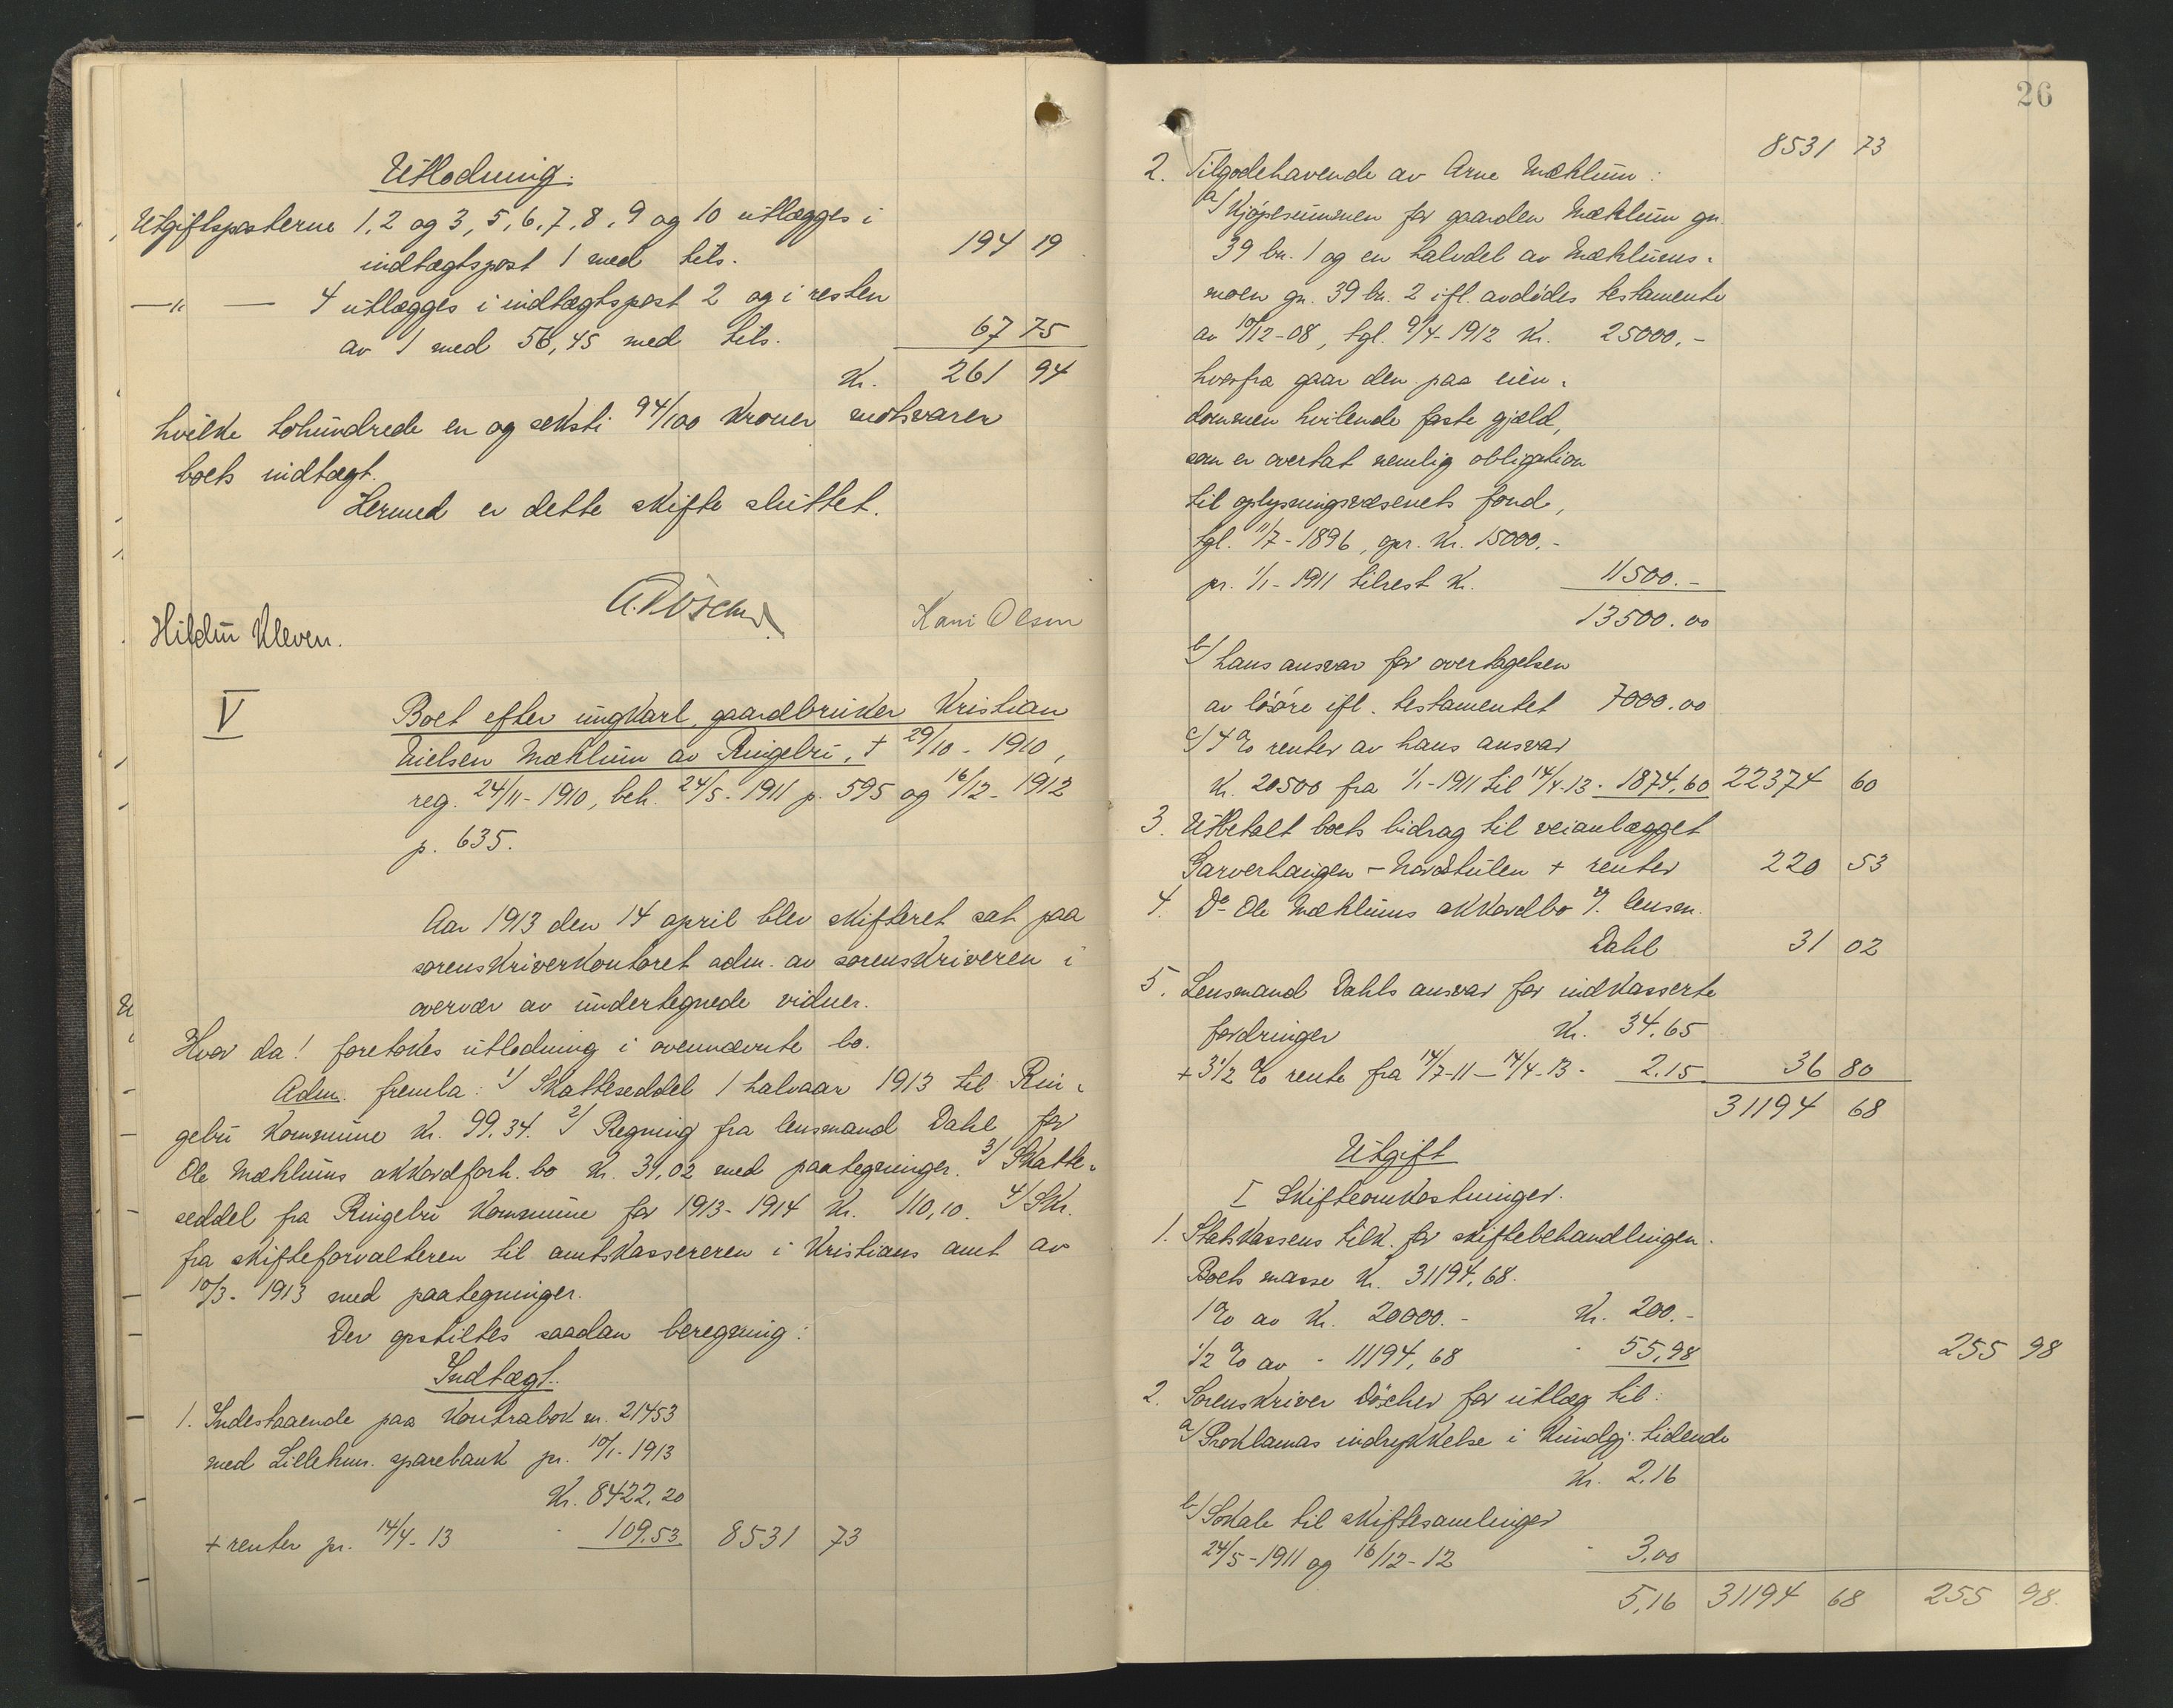 Utlodning.
Utgiftsposterne 1, 2 og 3, 5, 6, 7, 8, 9 og 10 utlægges i
indtægtspost 1 med tils. 194 19
—"— 4 utlægges i indtægtspost 2 og i resten
av 1 med 56,45 med tils. 67 75
Kr. 261 94
hvilke tohundrede en og seksti 94/100 kroner motsvarer
boets indtægt.
Hermed er dette skifte sluttet.
A. Döscher
Hildur Kleven.
Kani Olsen
V
Boet efter ungkarl, gaardbruker Kristian
Nielsen Mæhlum av Ringebu, † 29/10 - 1910,
reg. 24/11 - 1910, beh. 24/5 - 1911 p. 595 og 16/12 - 1912
p. 635.
Aar 1913 den 14 april blev skifteret sat paa
sorenskriverkontoret adm. av sorenskriveren i
overvær av undertegnede vidner.
Hvor da! foretokes utlodning i ovennævnte bo.
Adm. fremla: 1/ Skatteseddel 1 halvaar 1913 til Rin-
gebu kommune kr. 99.34. 2/ Regning fra lensmand Dahl for
Ole Mæhlums akkordforh. bo kr. 31,02 med paategninger. 3/ Skatte-
seddel fra Ringebu kommune for 1913 - 1914 kr. 110,10. 4/ Skr.
fra skifteforvalteren til amtskassereren i Kristians amt av
10/3 - 1913 med paategninger.
Der opstiltes saadan beregning:
Indtægt.
1. Indestaaende paa kontrabok nr. 21453
med Lillehm. sparebank pr. 10/1 - 1913
Kr. 8422,20
+ renter pr. 14/4 - 13 - 109.53 8531 73
26
8531 73
2. Tilgodehavende av Arne Mæhlum:
a/ Kjøpesummen for gaarden Mæhlum gn.
39 bn. 1 og en halvdel av Mæhlums-
moen gn. 39 bn. 2 ifl. avdødes testamente
av 10/12 - 08, tgl. 9/4 - 1912 Kr. 25000.-
hvorfra gaar den paa eien-
dommen hvilende faste gjæld,
som er overtat nemlig obligation
til oplysningsvæsenets fond,
tgl. 11/7 - 1896, opr. Kr. 15000.-
pr. 1/1 - 1911 tilrest Kr. 11500.-
13500.00
b/ hans ansvar for overtagelsen
av løsøre ifl. testamentet 7000.00
c/ 4 % renter av hans ansvar
Kr. 20500 fra 1/1 - 1911 til 14/4 - 13 - 1874,60 22374 60
3. Utbetalt boets bidrag til veianlægget
Garverhaugen - Nordstulen + renter 220 53
4. Do Ole Mæhlums akkordbo v/ lensm.
Dahl 31 02
5. Lensmand Dahls ansvar for indkasserte
fordringer Kr. 34,65
+ 3 1/2 % rente fra 14/7 - 11 — 14/4 - 13 - 2.15 36 80
31194 68
Utgift
I Skifteomkostninger.
1. Statskassens tilk. for skiftebehandlingen.
Boets masse Kr. 31194,68.
1 % av Kr. 20000.- Kr. 200.-
1/2 % av - 11194,68 - 55,98 255 98
2. Sorenskriver Döscher for utlæg til:
a/ Proklamas indrykkelse i Kundgj. tidende
Kr. 2,16
b/ Lokale til skiftesamlinger
24/5 - 1911 og 16/12 - 12 - 3,00
5,16 31194 68 255 98.